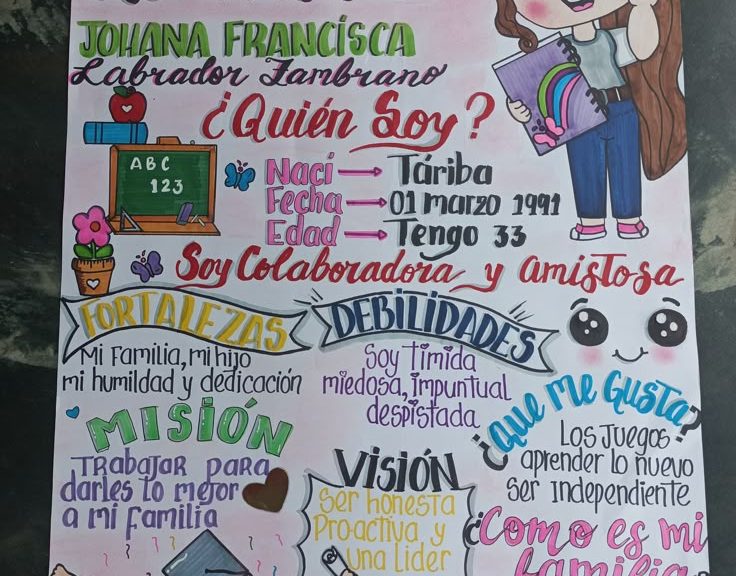 JOHANA FRANCÍSCA
Labrador Zambrano
¿Quién Soy?
A B C
123
Nací → Táriba
Fecha → 01 marzo 1991
Edad → Tengo 33
Soy Colaboradora y amistosa
FORTALEZAS
Mi Familia, mi hijo
mi humildad y dedicación
DEBILIDADES
Soy Tímida
miedosa, impuntual
despistada
¿Que me Gusta?
Los Juegos
aprender lo nuevo
Ser Independiente
MISIÓN
Trabajar para
darles lo mejor
a mi familia
VISIÓN
Ser honesta
Pro-activa y
una Lider
¿Como es mi
familia